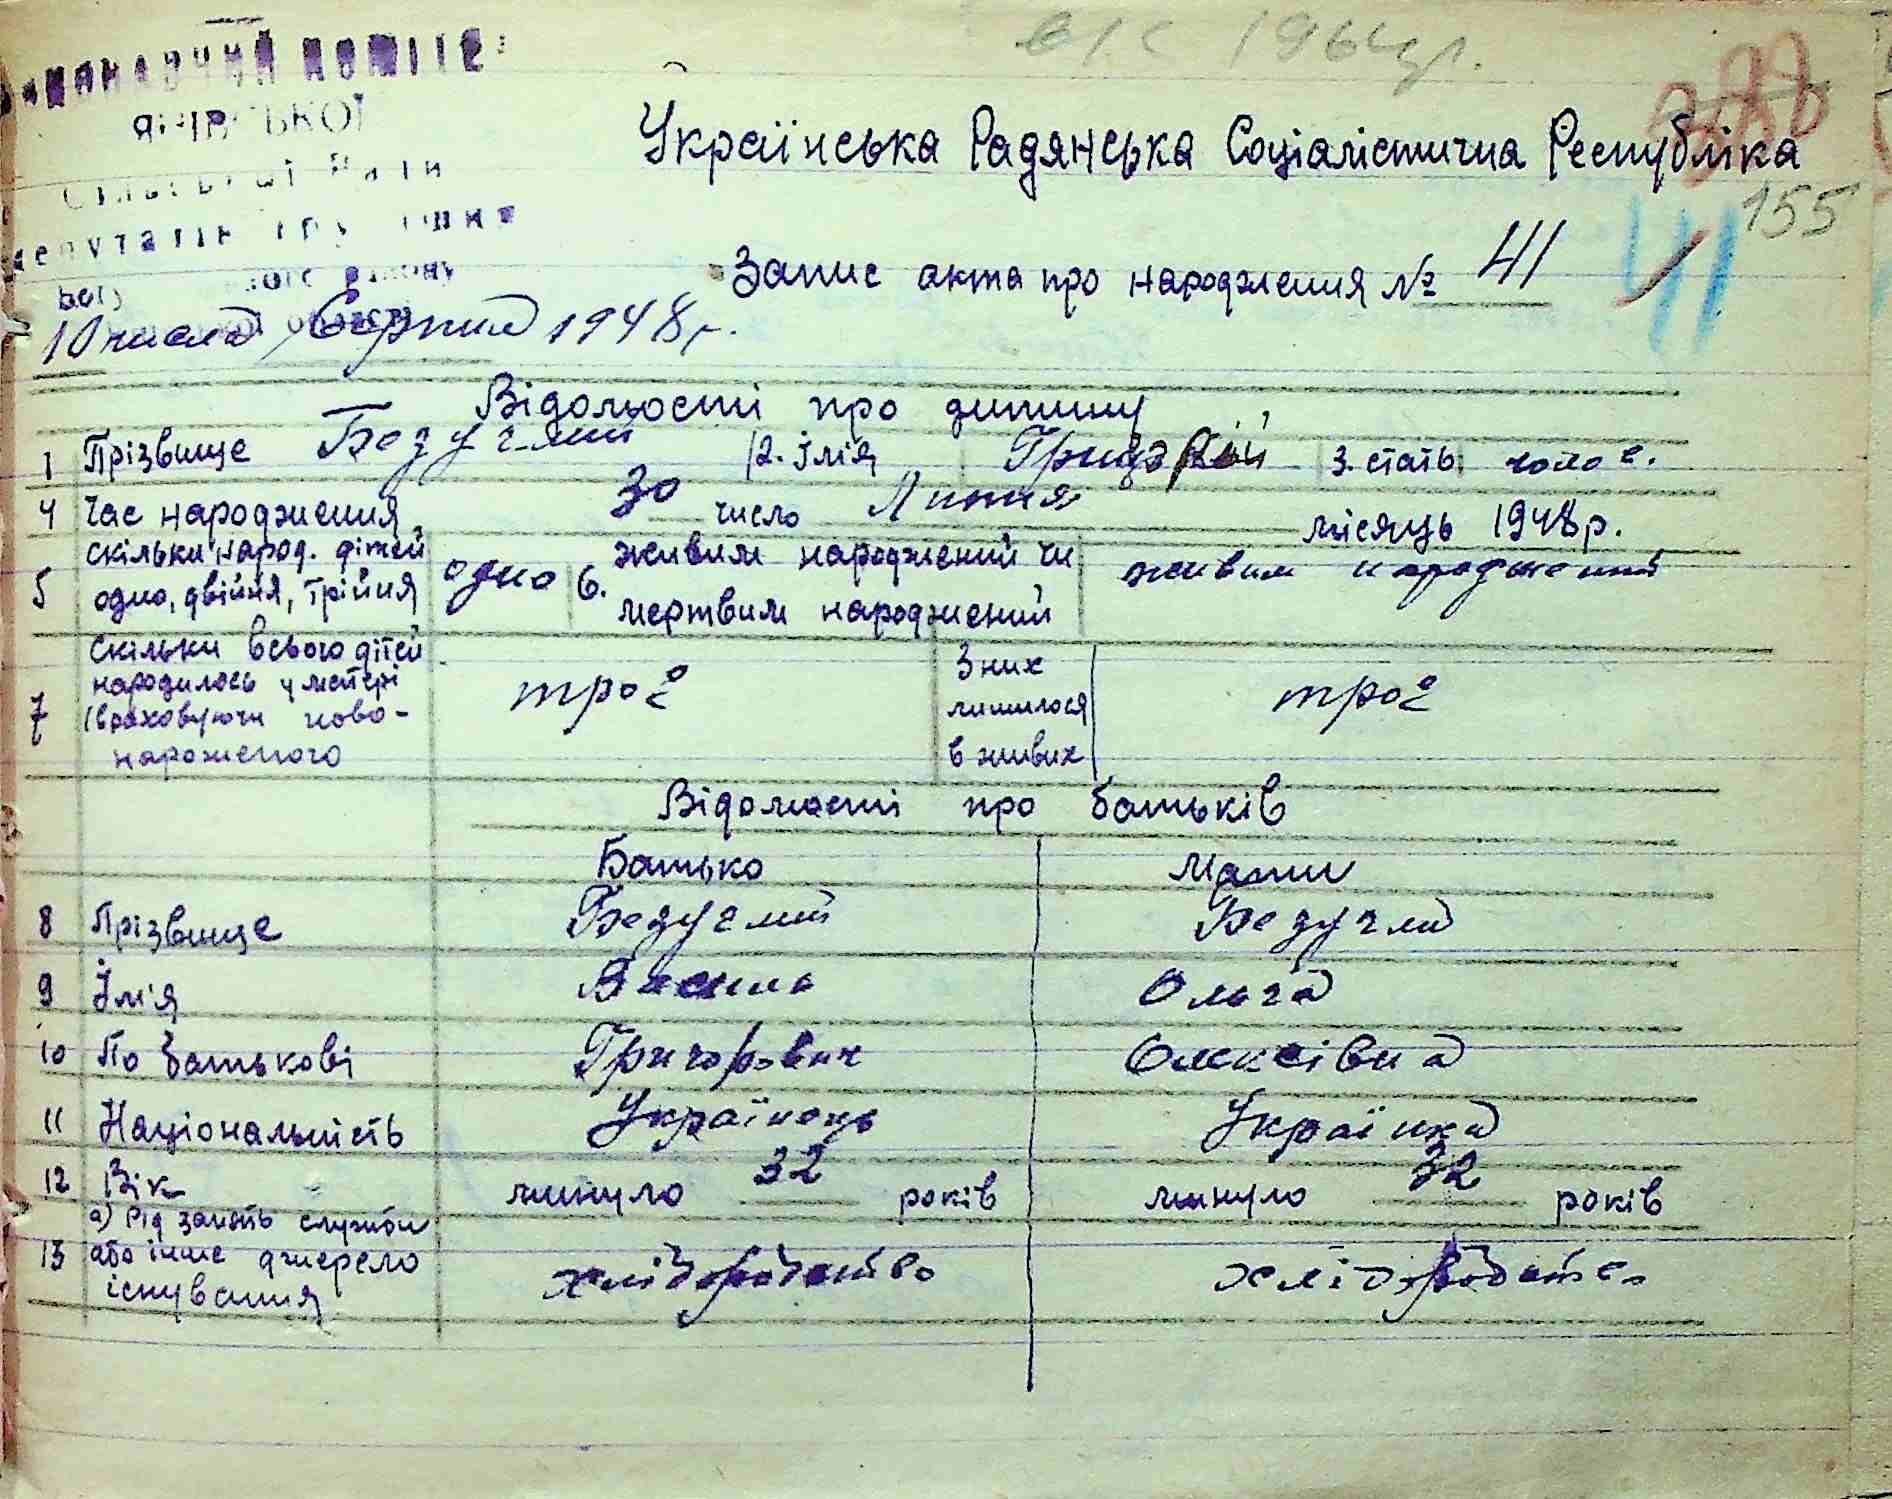 в/с 1964р.
388
Українська Радянська Соціалістична Республіка
155
Запис акта про народження № 41
41
10 числа Серпня 1948 р.
Відомості про дитину
1 Прізвище Безуглий 2. Їмя Григорій 3. стать чолов.
4 Час народження 30 число Липня місяць 1948р.
5 скільки народ. дітей одно, двійня, трійня одно 6. живим народжений чи мертвим народжений живим народжений
7 скільки всього дітей народилось у матері (враховуючи ново-народженого троє З них лишилося в живих троє
Відомості про батьків
Батько Мати
8 Прізвище Безуглий Безугла
9 Їм'я Василь Ольга
10 По батькові Григорович Олексівна
11 Національність Українець Українка
12 Вік минуло 32 років минуло 32 років
13 а) Рід занять служби або інше джерело існування хліборобство хліборобство